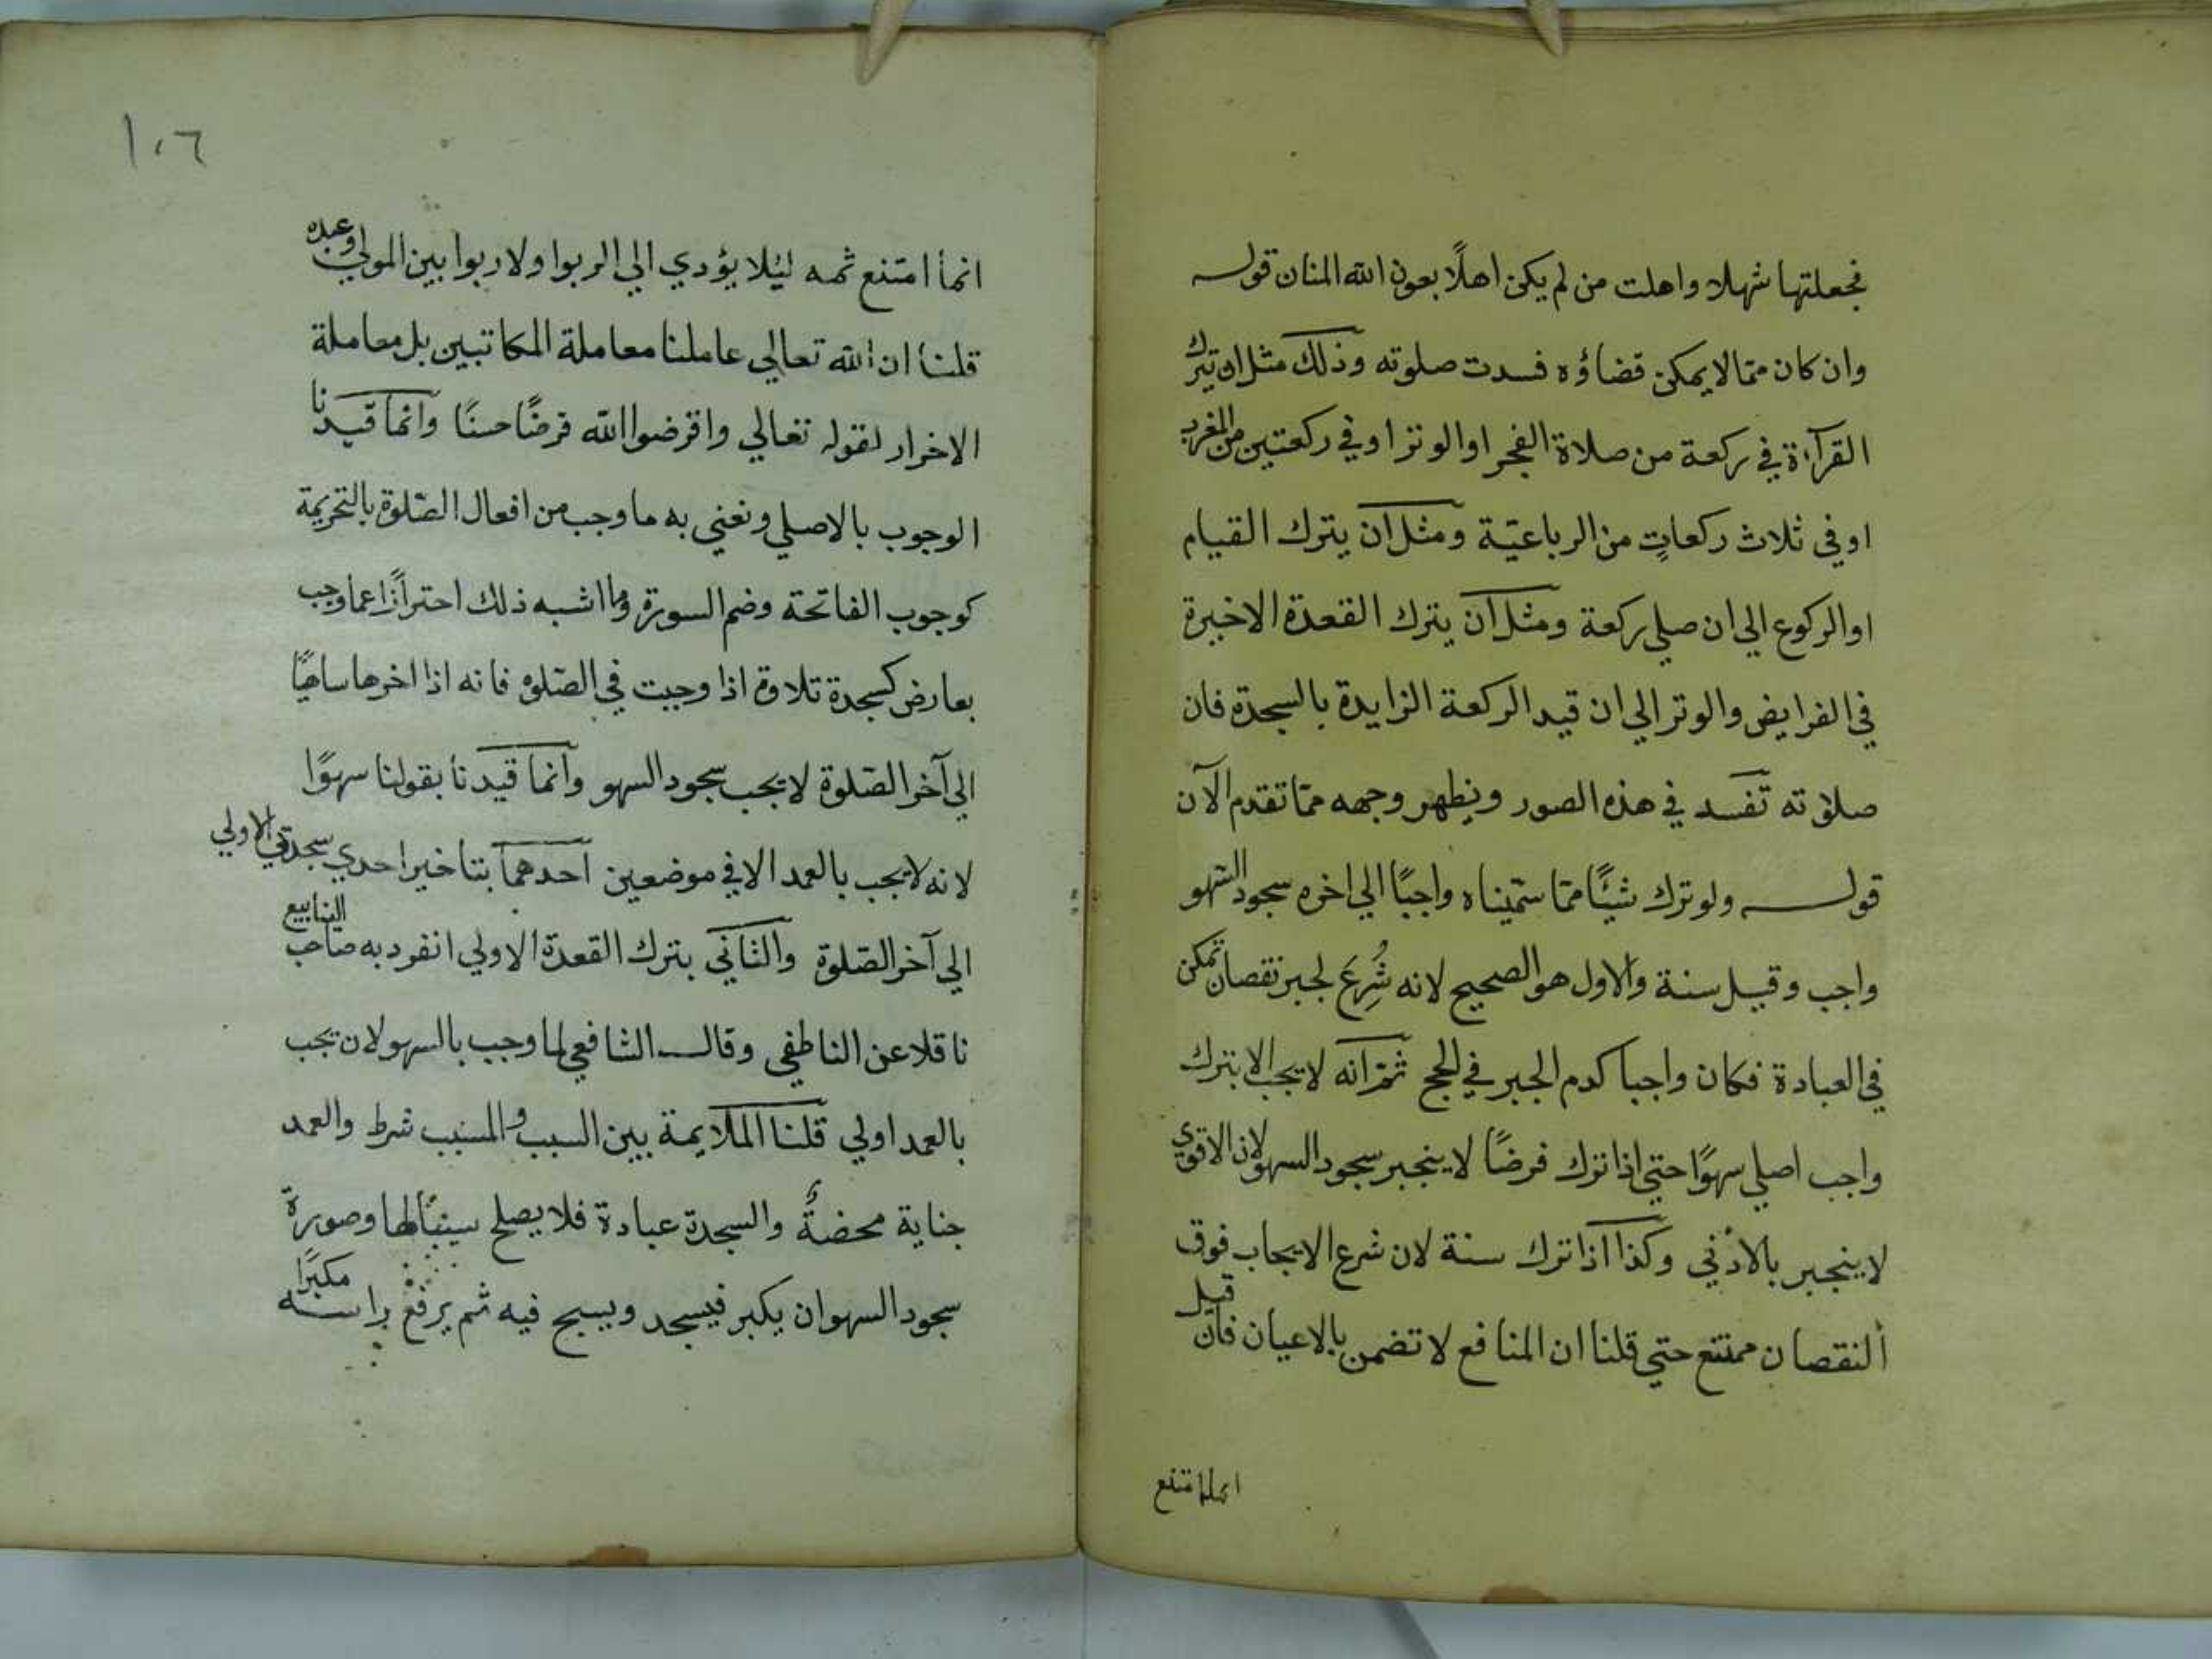 فجعلتها شهلا واهلت من لم يكن اهلًا بعون الله المنان قوله
وان كان ممّا لا يمكن قضاؤه فسدت صلوته وذلك مثل ان يترك
القرآءة في ركعة من صلاة الفجر او الوتر او في ركعتين من المغرب
او في ثلاث ركعاتٍ من الرباعيّة ومثل ان يترك القيام
او الركوع الي ان صلي ركعة ومثل ان يترك القعدة الاخيرة
في الفرايض والوتر الي ان قيد الركعة الزايدة بالسجدة فان
صلاته تفسد في هذه الصور ويظهر وجهه ممّا تقدم الآن
قوله ولو ترك شيئًا ممّا سمّيناه واجبًا الي اخره سجود السهو
واجب وقيل سنة والاول هو الصحيح لانه شُرِعَ لجبر نقصان تمكن
في العبادة فكان واجبا كدم الجبر في الحج ثمّ انه لا يجب الا بترك
واجب اصلي سهوًا حتي اذا ترك فرضًا لا ينجبر سجود السهو لان الاقوي
لا ينجبر بالادني وكذا اذا ترك سنة لان شرع الايجاب فوق
النقصان ممتنع حتي قلنا ان المنافع لا تضمن بالاعيان فان قيل
انما امتنع
١٠٦
انما امتنع ثمه ليئلا يؤدي الي الربوا ولا ربوا بين المولي وعبده
قلنا ان الله تعالي عاملنا معاملة المكاتبين بل معاملة
الاخرار لقوله تعالي واقرضوا الله قرضًا حسنًا وانما قيدنا
الوجوب بالاصلي ونعني به ما وجب من افعال الصّلوة بالتحريمة
كوجوب الفاتحة وضم السورة وما اشبه ذلك احترازًا عما وجب
بعارض كسجدة تلاوة اذا وجبت في الصّلوة فانه اذا اخرها ساهيًا
الي آخر الصّلوة لا يجب سجود السهو وانما قيدنا بقولنا سهوًا
لانه لا يجب بالعمد الا في موضعين احدهما بتاخير احدي سجدتي الاولي
الي آخر الصّلوة والثاني بترك القعدة الاولي انفرد به صاحب الينابيع
ناقلا عن الناطفي وقال الشافعي لما وجب بالسهو لان يجب
بالعمد اولي قلنا الملايمة بين السبب والمسبب شرط والعمد
جناية محضةٌ والسجدة عبادة فلا يصلح سببًا لها وصورة
سجود السهو ان يكبر فيسجد ويسبح فيه ثم يرفع راسه مكبرًا